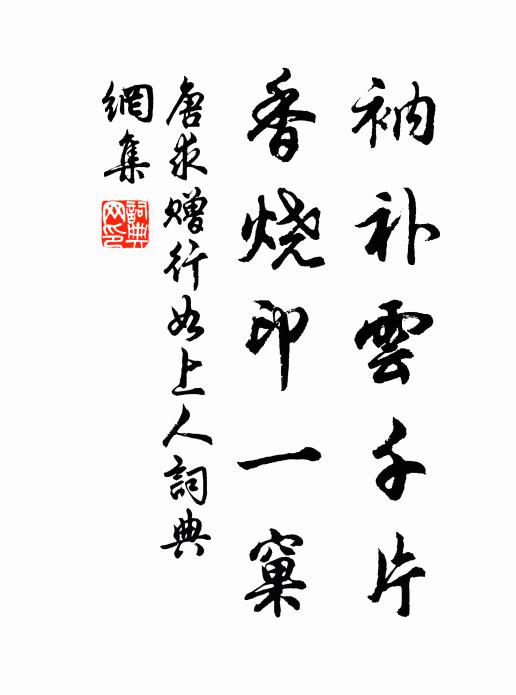 衲补雲千片
香烧印一窠
唐求赠行如上人詞典
網集
詞典网印